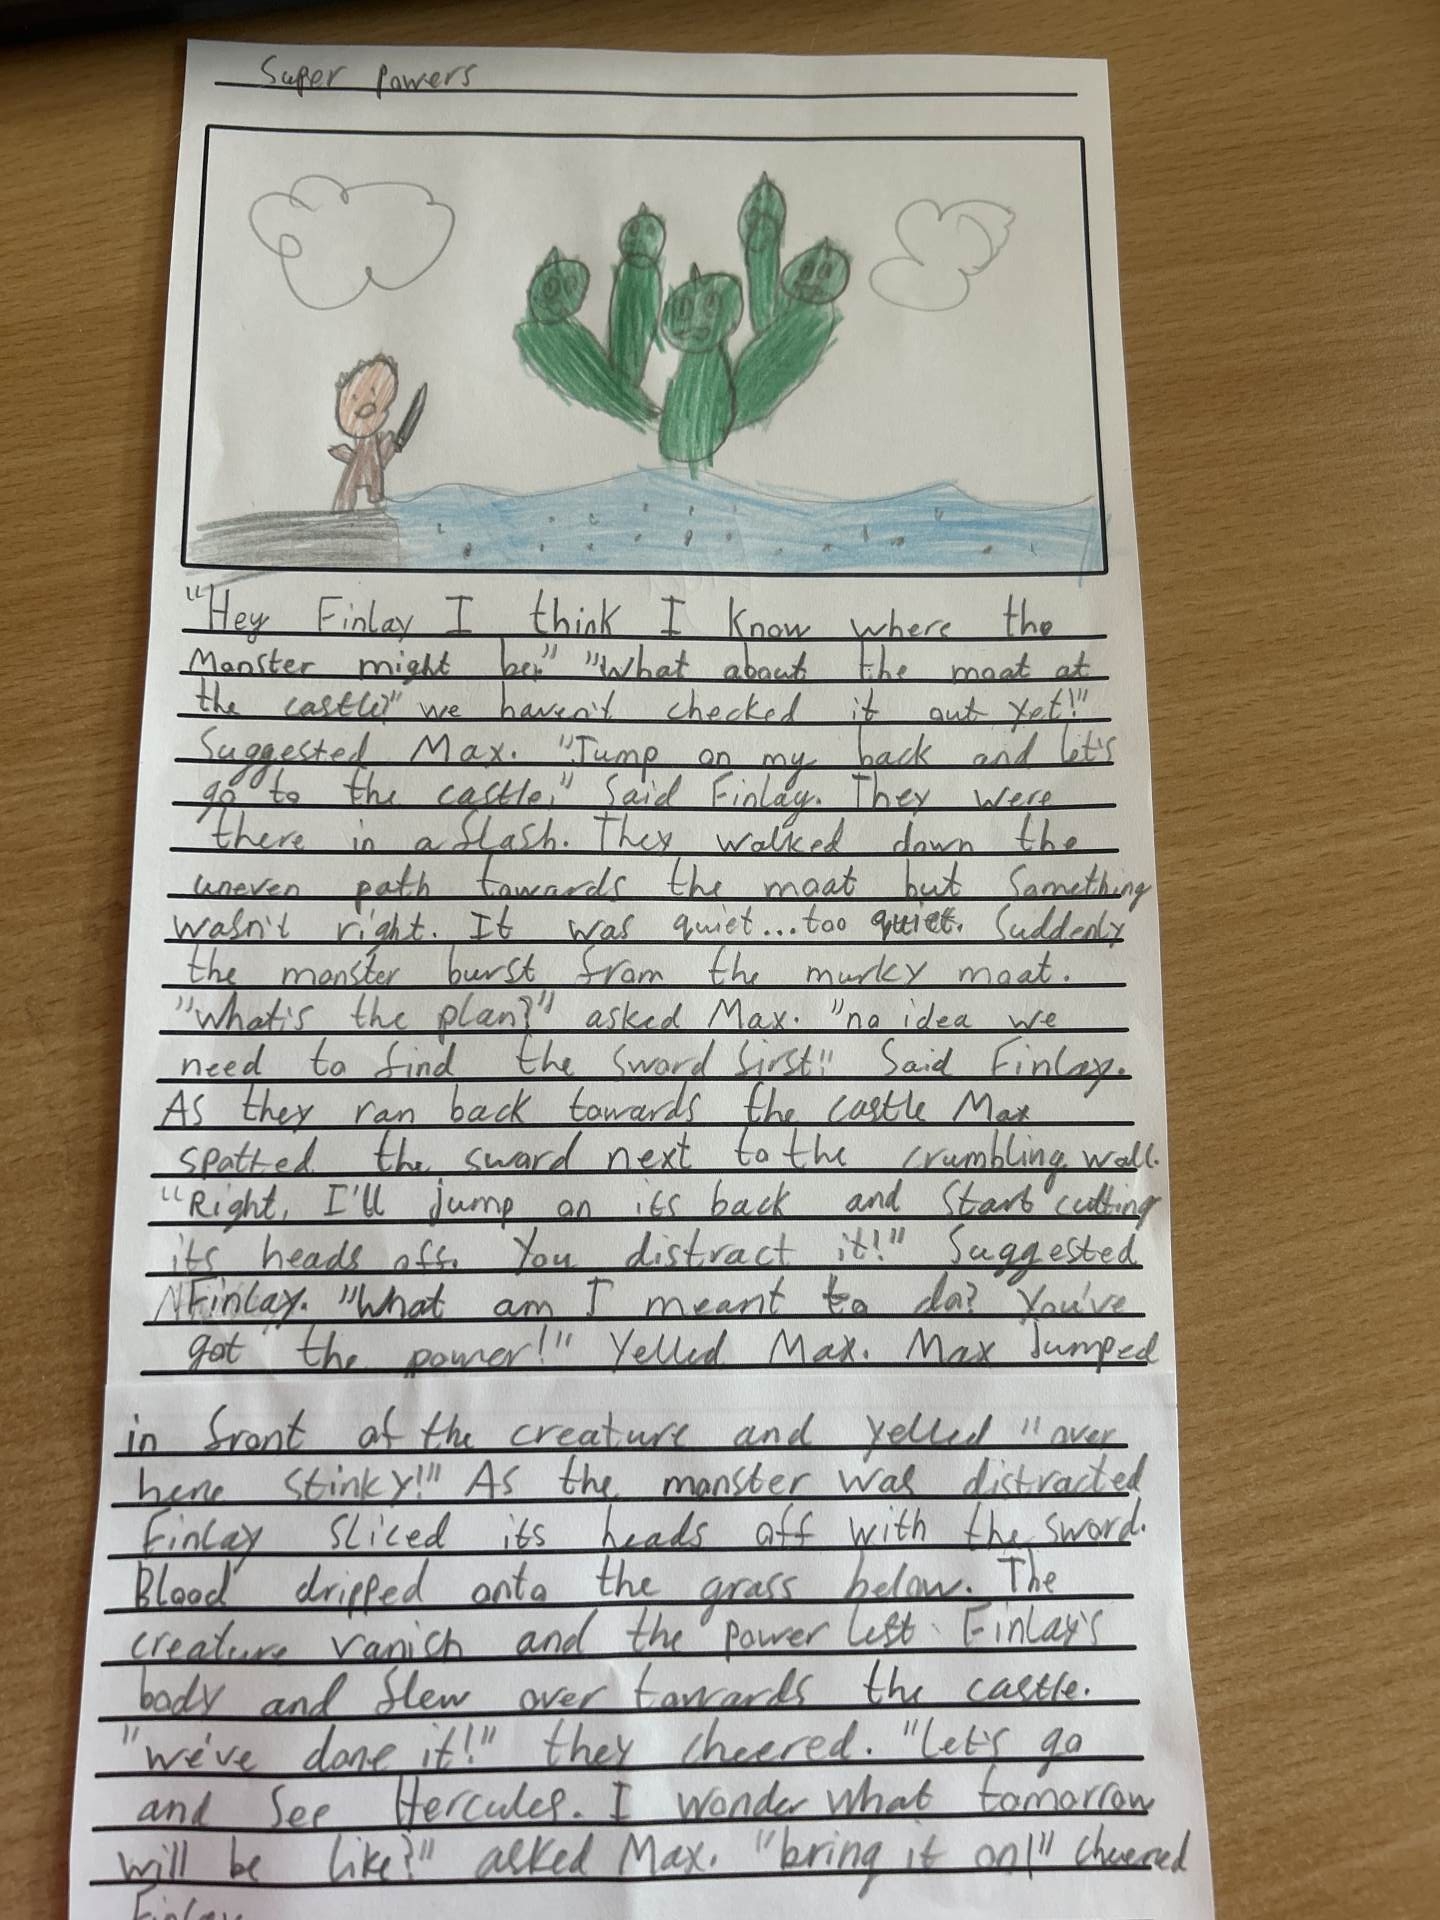 Super Powers
"Hey Finlay I think I know where the
Monster might be." "What about the moat at
the castle?" we haven't checked it out yet!"
Suggested Max. "Jump on my back and let's
go to the castle," Said Finlay. They were
there in a flash. They walked down the
uneven path towards the moat but Something
wasn't right. It was quiet...too quiet. Suddenly
the monster burst from the murky moat.
"What's the plan?" asked Max. "no idea we
need to find the sword first!" Said Finlay.
As they ran back towards the castle Max
spotted the sword next to the crumbling wall.
"Right, I'll jump on its back and Start cutting
its heads off. You distract it!" Suggested
Finlay. "What am I meant to do? You've
got the power!" Yelled Max. Max Jumped
in front of the creature and yelled "over
here Stinky!" As the monster was distracted
Finlay Sliced its heads off with the sword.
Blood dripped onto the grass below. The
creature vanish and the power left Finlay's
body and flew over towards the castle.
"we've done it!" they cheered. "Let's go
and See Hercules. I wonder what tomorrow
will be like?" asked Max. "bring it on!" cheered
Finlay